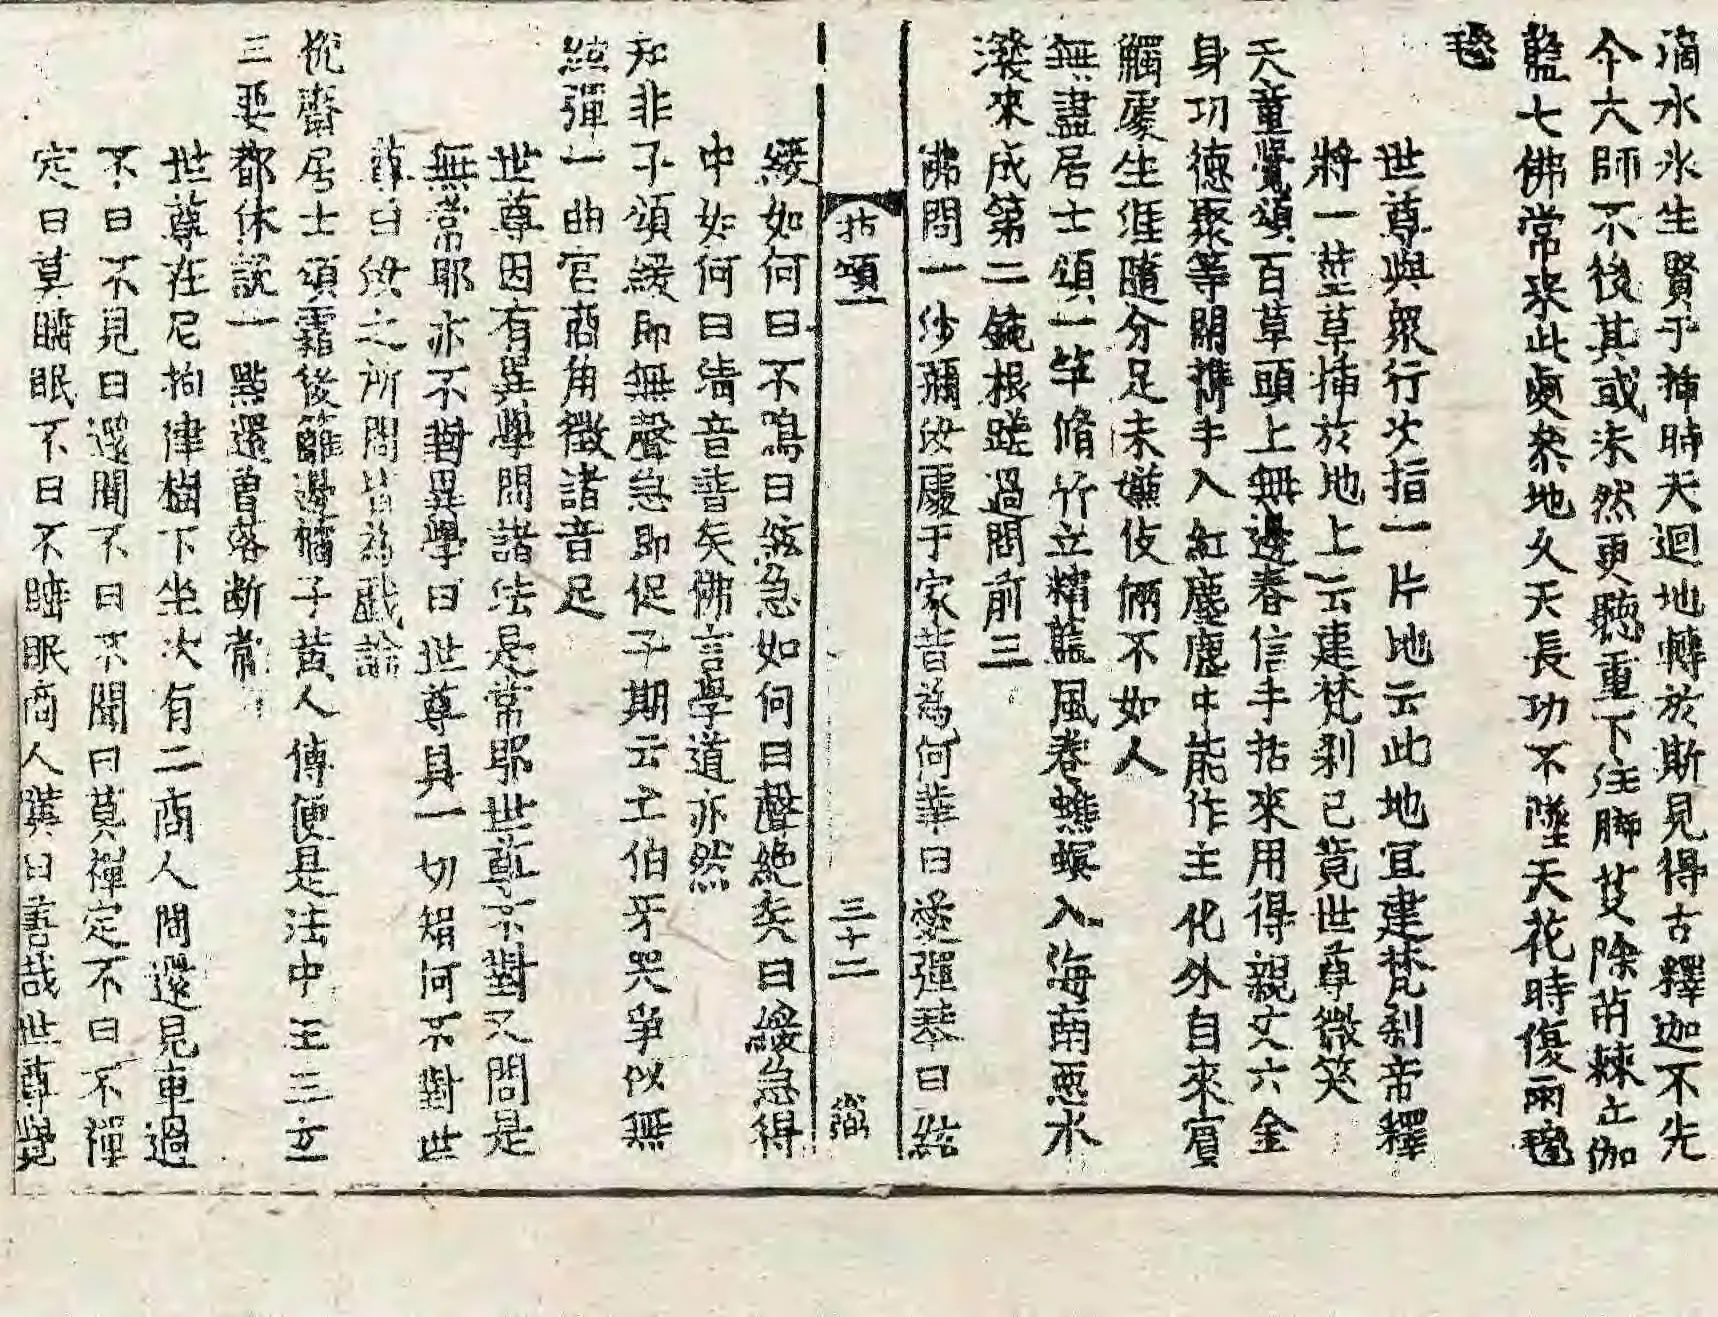 滴水氷生賢于揷時天迴地轉於斯見得古釋迦不先
今六師不後其或未然更聽重下注脚芟除荊棘立伽
藍七佛常來此處叅地久天長功不墜天花時復雨毶
毶
世尊與衆行次指一片地云此地冝建梵刹帝釋
將一莖草揷於地上云建梵刹已竟世尊微笑
天童覺頌百草頭上無邊春信手拈來用得親丈六金
身功德聚等閑攜手入紅塵塵中能作主化外自來賓
觸處生涯隨分足未嫌伎倆不如人
無盡居士頌一竿脩竹立精藍風卷蟭螟入海南惡水
潑來成第二鈍根蹉過問前三
佛問一沙彌汝處于家昔為何業曰愛彈琴曰絃
拈頌一
三十二
緩如何曰不鳴曰絃急如何曰聲絶矣曰緩急得
中如何曰淸音普矣佛言學道亦然
知非子頌緩即無聲急即促子期云亡伯牙哭爭似無
絃彈一曲宮商角徵諸音足
世尊因有異學問諸法是常耶世尊不對又問是
無常耶亦不對異學曰世尊具一切智何不對世
尊曰汝之所問皆為戲論
悅齋居士頌霜後籬邊橘子黃人傳便是法中王三玄
三要都休說一點還曾落断常
世尊在尼拘律樹下坐次有二商人問還見車過
不曰不見曰還聞不曰不聞曰莫禪定不曰不禪
定曰莫睡眠不曰不睡眠商人嘆曰善哉世尊覺